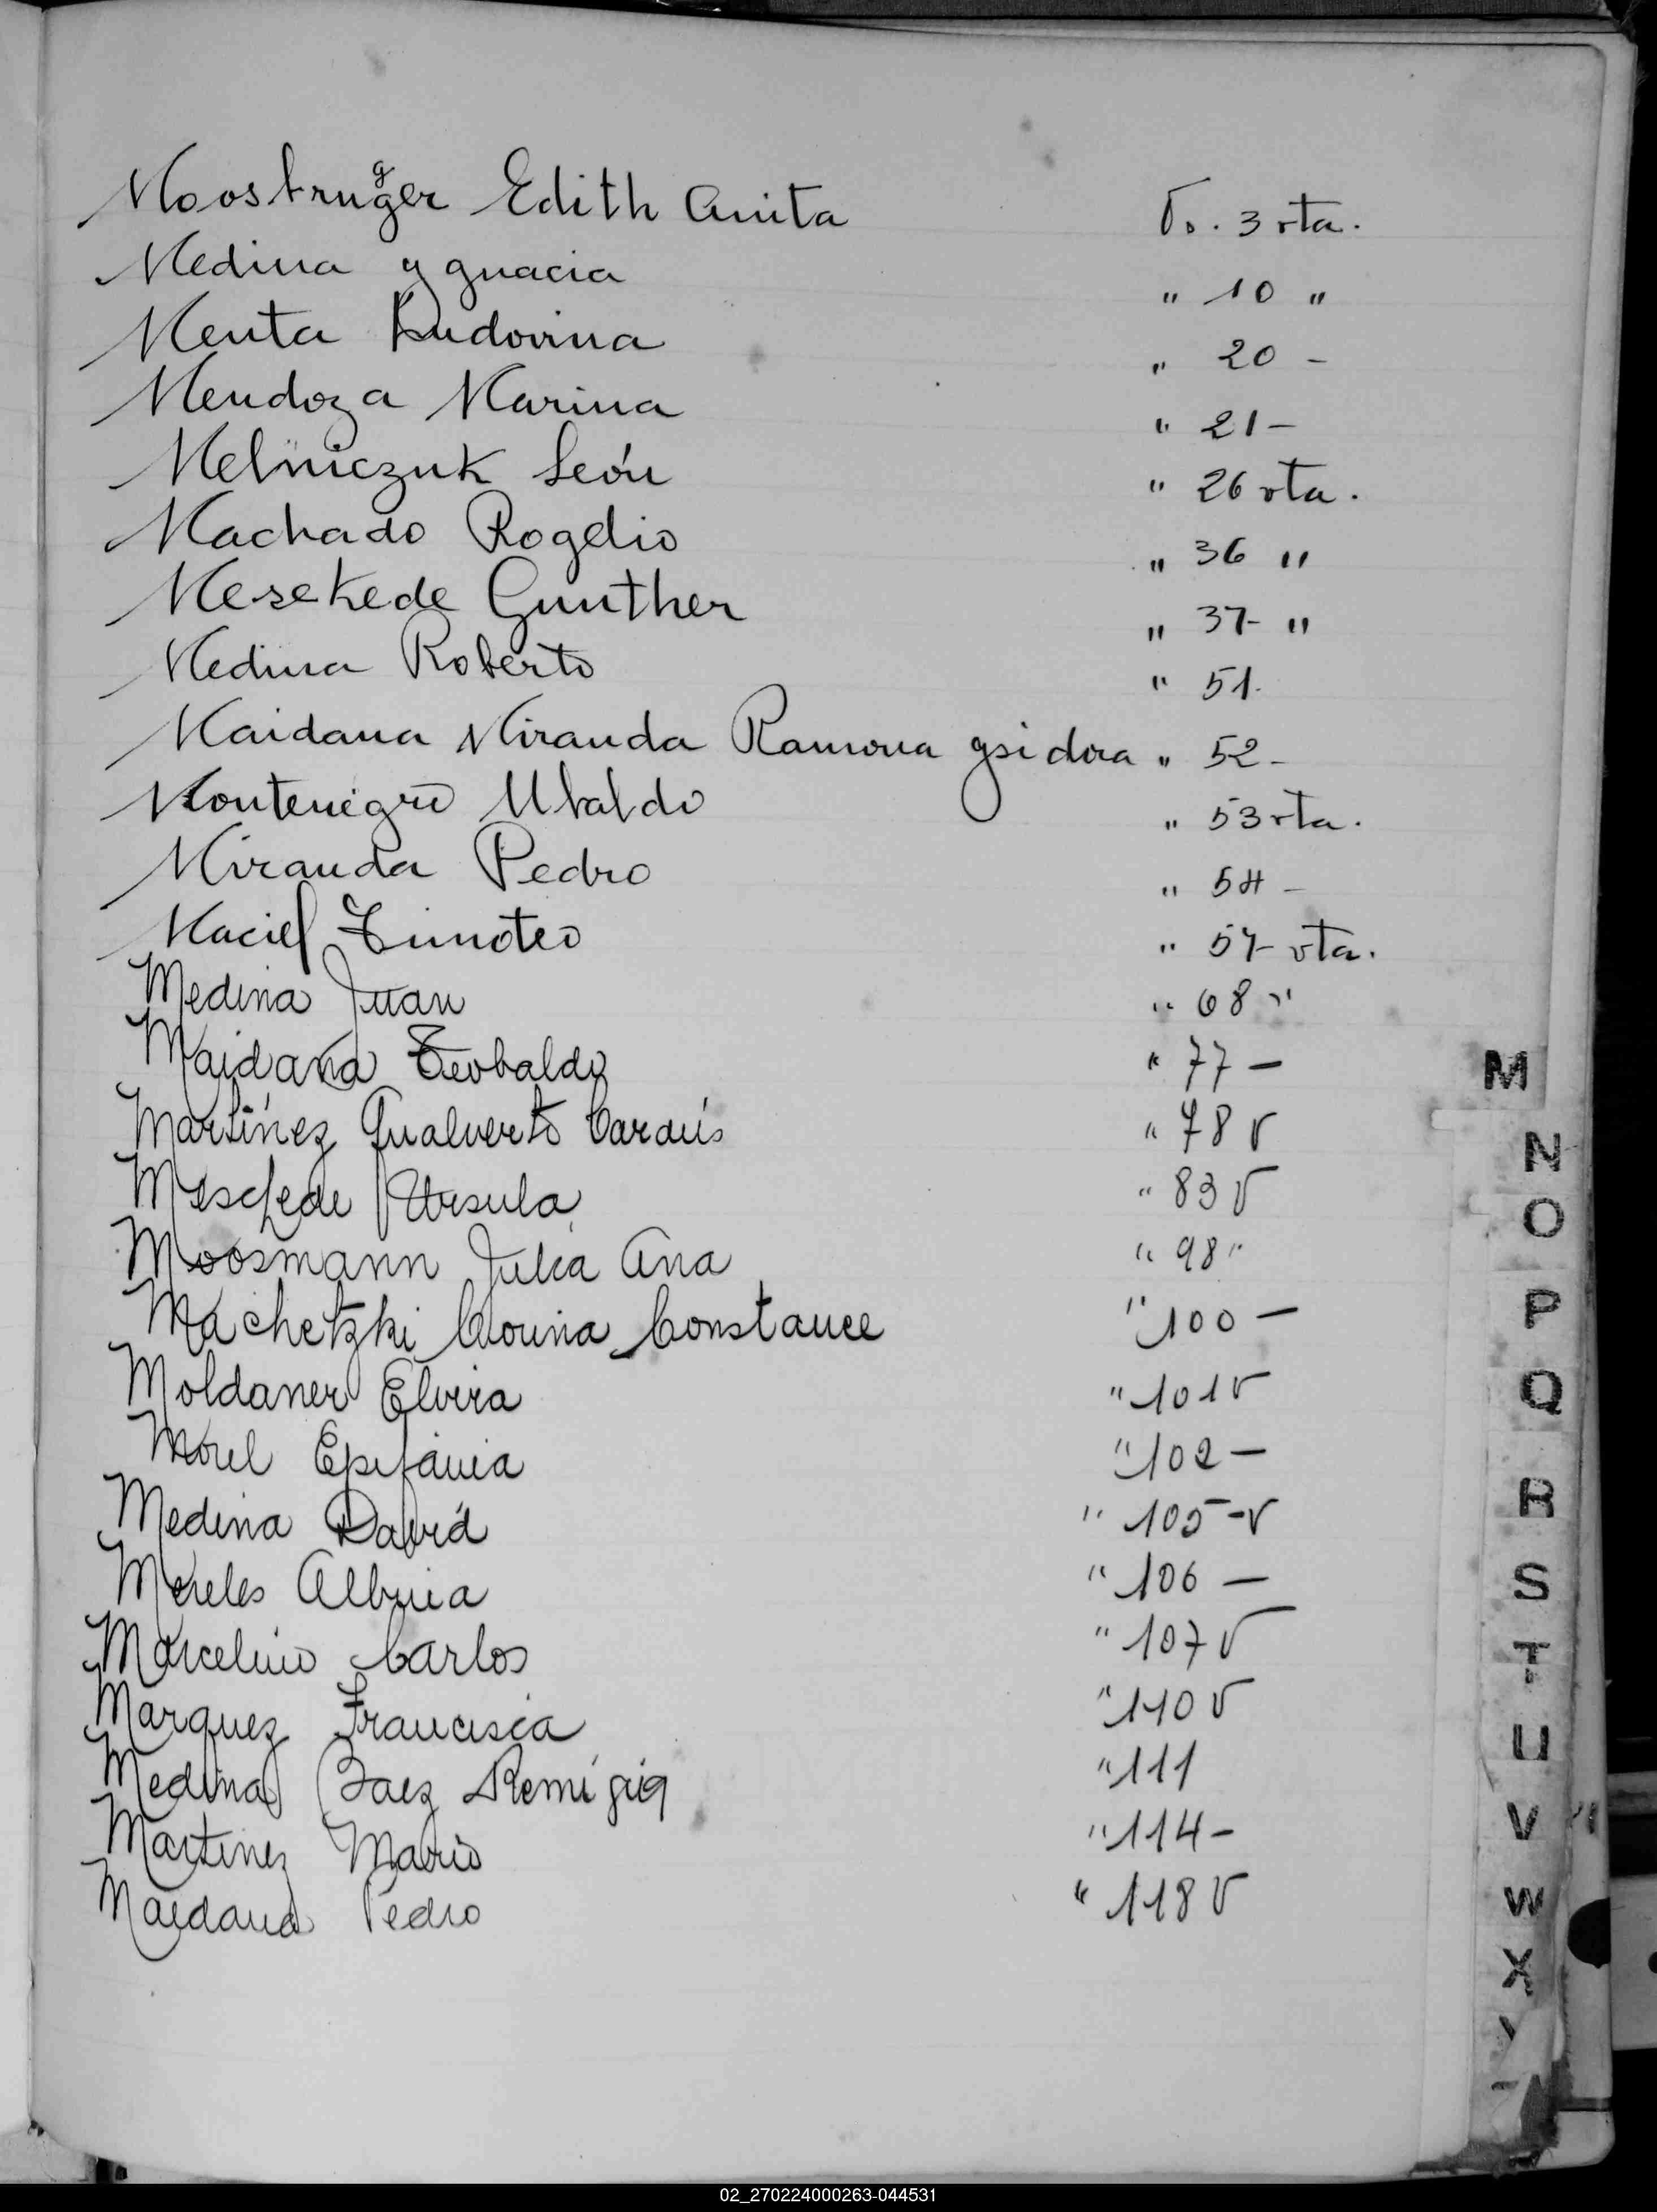 Moosbrugger Edith Anita Fo. 3 vta.
Medina Ygnacia " 10 "
Menta Ludovina " 20 -
Mendoza Marina " 21 -
Melniczuk León " 26 vta.
Machado Rogelio " 36 "
Mesekede Gunther " 37- "
Medina Roberto " 51.
Maidana Miranda Ramona Ysidora " 52 -
Montenegro Ubaldo " 53 vta.
Miranda Pedro " 54 -
Maciel Timoteo " 57- vta.
Medina Juan " 68 "
Maidana Teobaldo " 77 -
Martínez Gualverto Cardús " 78 v
Meschede Ursula " 83 v
Moosmann Julia Ana " 98 "
Machetzki Corina Constance " 100 -
Moldaner Elvira " 101 v
Morel Epifania " 102 -
Medina David " 105 - v
Mereles Albina " 106 -
Marcelino Carlos " 107 v
Marquez Francisca " 110 v
Medina Baez Remigia " 111
Martinez Mario " 114 -
Maidana Pedro " 118 v
M
N
O
P
Q
R
S
T
U
V
W
X
Y
02_270224000263-044531